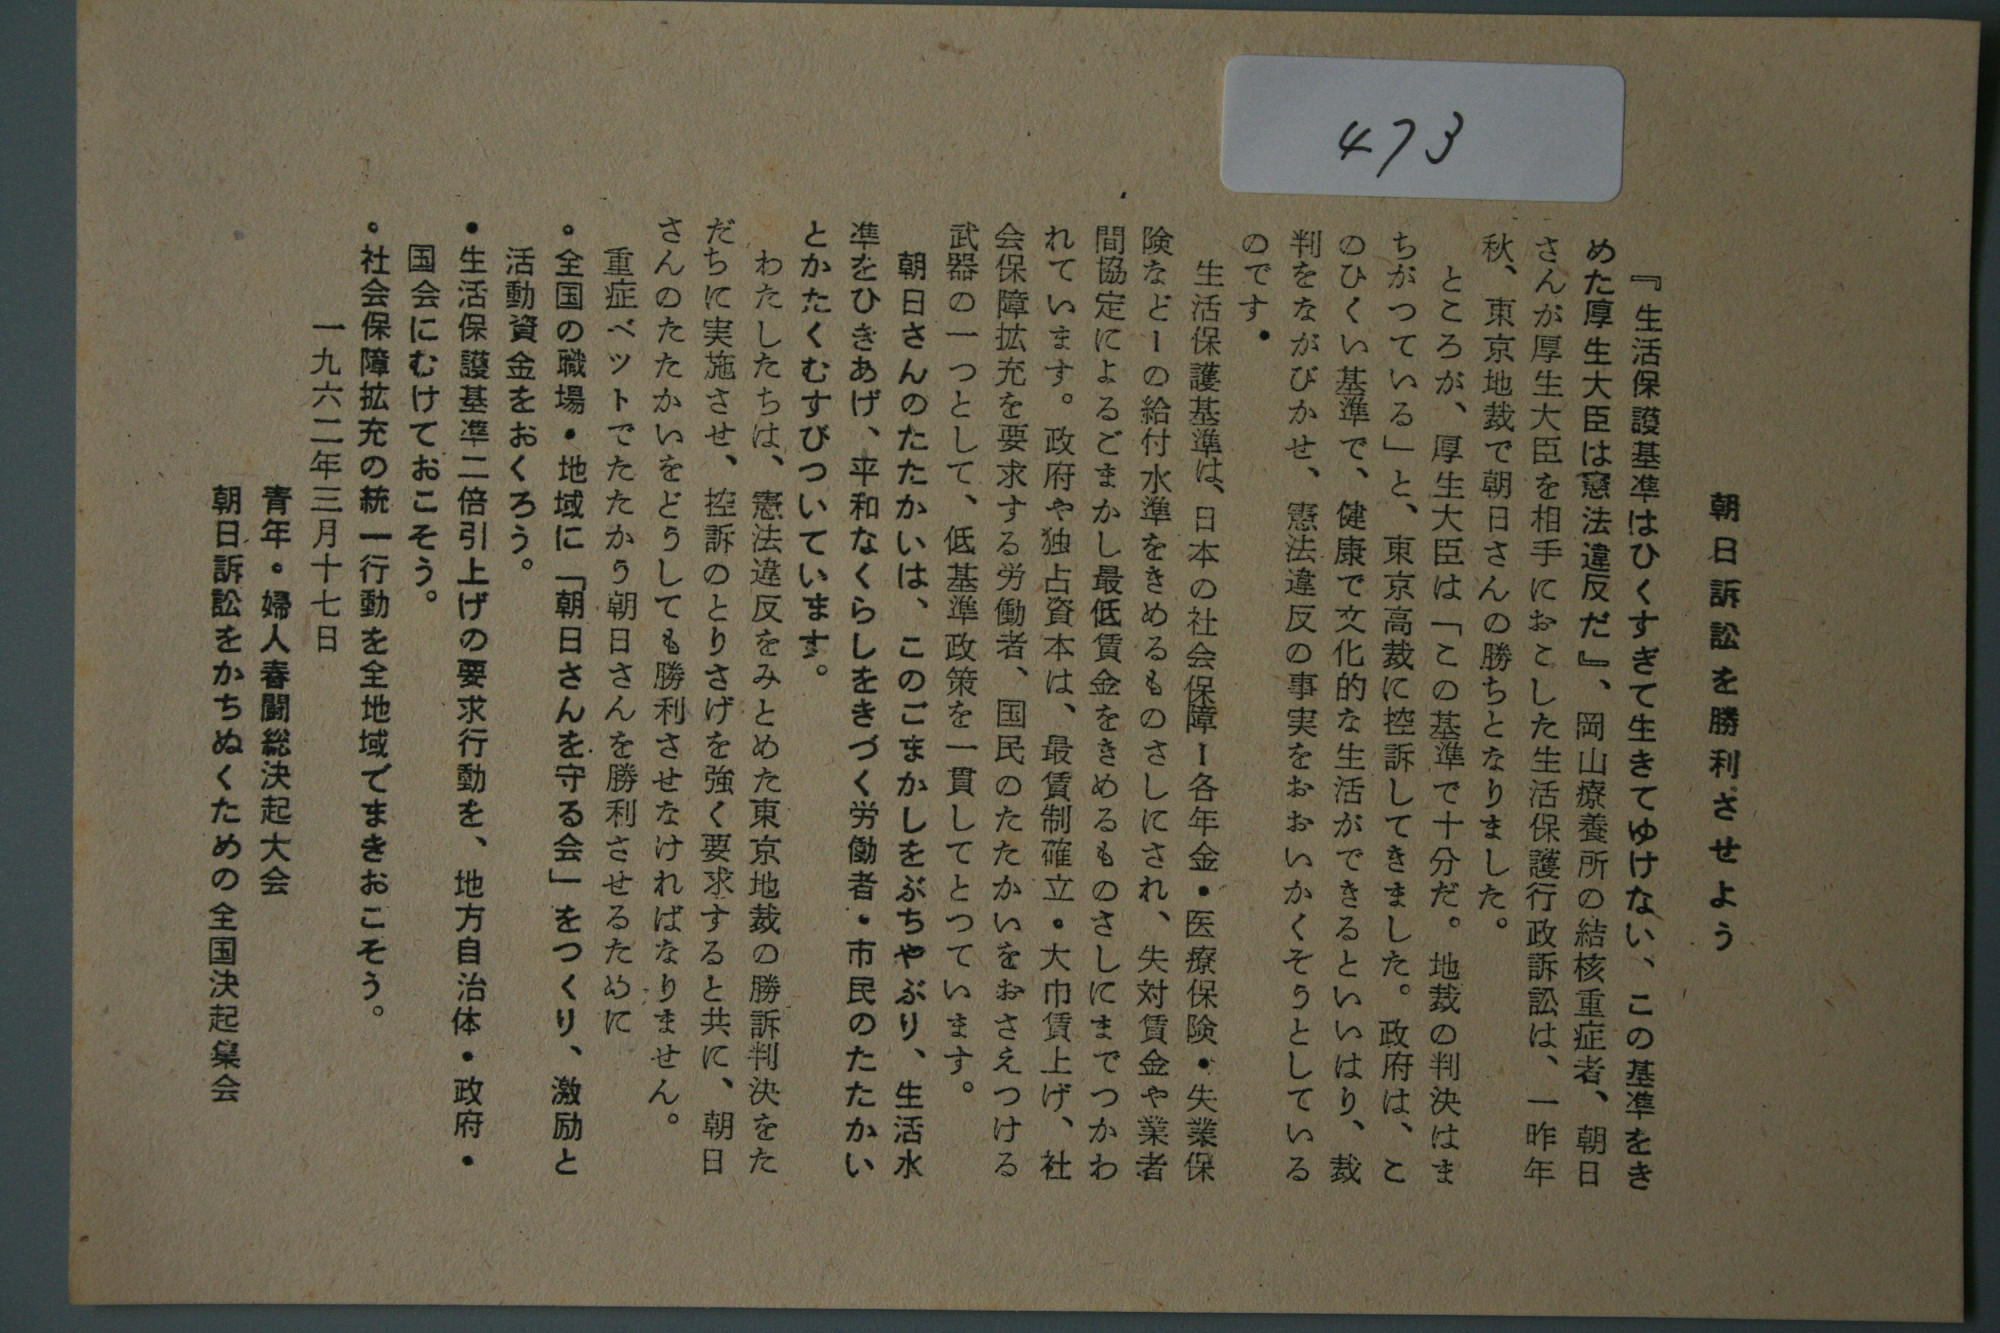 473
朝日訴訟を勝利させよう
『生活保護基準はひくすぎて生きてゆけない、この基準をき
めた厚生大臣は憲法違反だ』、岡山療養所の結核重症者、朝日
さんが厚生大臣を相手におこした生活保護行政訴訟は、一昨年
秋、東京地裁で朝日さんの勝ちとなりました。
ところが、厚生大臣は「この基準で十分だ。地裁の判決はま
ちがつている」と、東京高裁に控訴してきました。政府は、こ
のひくい基準で、健康で文化的な生活ができるといいはり、裁
判をながびかせ、憲法違反の事実をおおいかくそうとしている
のです・
生活保護基準は、日本の社会保障ー各年金・医療保険・失業保
険などーの給付水準をきめるものさしにされ、失対賃金や業者
間協定によるごまかし最低賃金をきめるものさしにまでつかわ
れています。政府や独占資本は、最賃制確立・大巾賃上げ、社
会保障拡充を要求する労働者、国民のたたかいをおさえつける
武器の一つとして、低基準政策を一貫してとつています。
朝日さんのたたかいは、このごまかしをぶちやぶり、生活水
準をひきあげ、平和なくらしをきづく労働者・市民のたたかい
とかたくむすびついています。
わたしたちは、憲法違反をみとめた東京地裁の勝訴判決をた
だちに実施させ、控訴のとりさげを強く要求すると共に、朝日
さんのたたかいをどうしても勝利させなければなりません。
重症ベツトでたたかう朝日さんを勝利させるために
・全国の職場・地域に「朝日さんを守る会」をつくり、激励と
活動資金をおくろう。
・生活保護基準二倍引上げの要求行動を、地方自治体・政府・
国会にむけておこそう。
・社会保障拡充の統一行動を全地域でまきおこそう。
一九六二年三月十七日
青年・婦人春闘総決起大会
朝日訴訟をかちぬくための全国決起集会